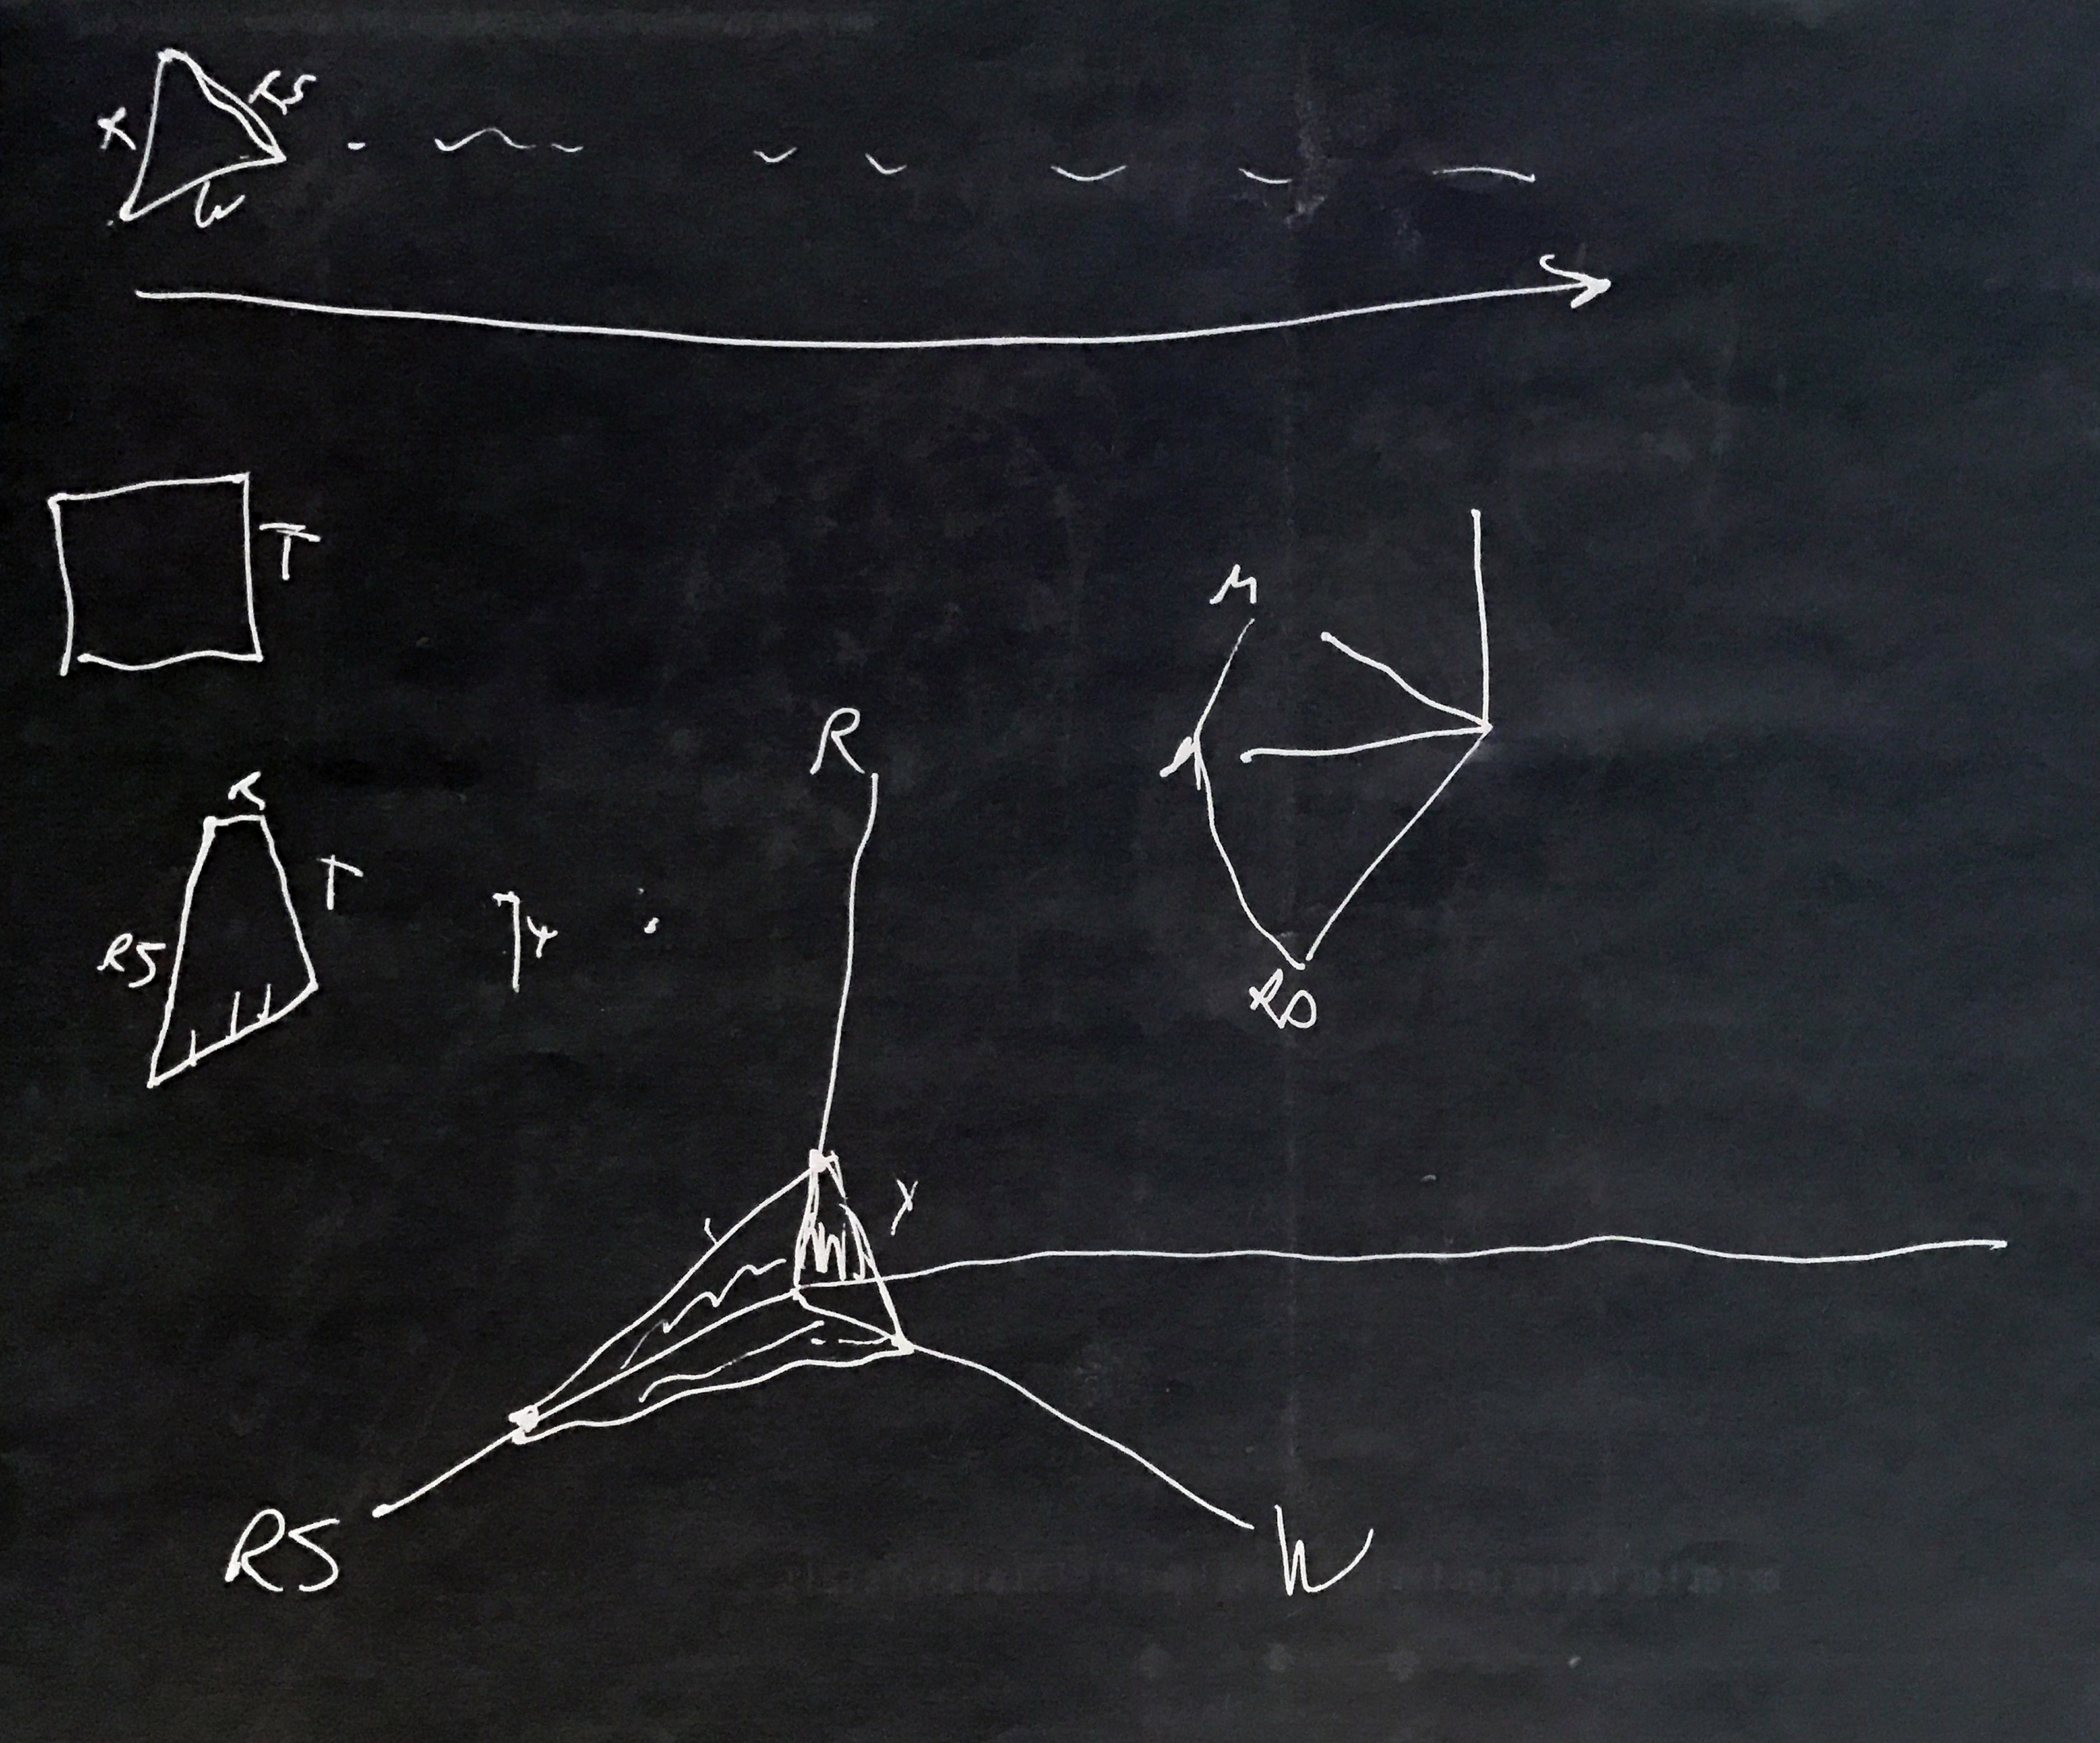 RS
X
W
T
R
M
R
T
RS
Y
RD
Y
RS
W